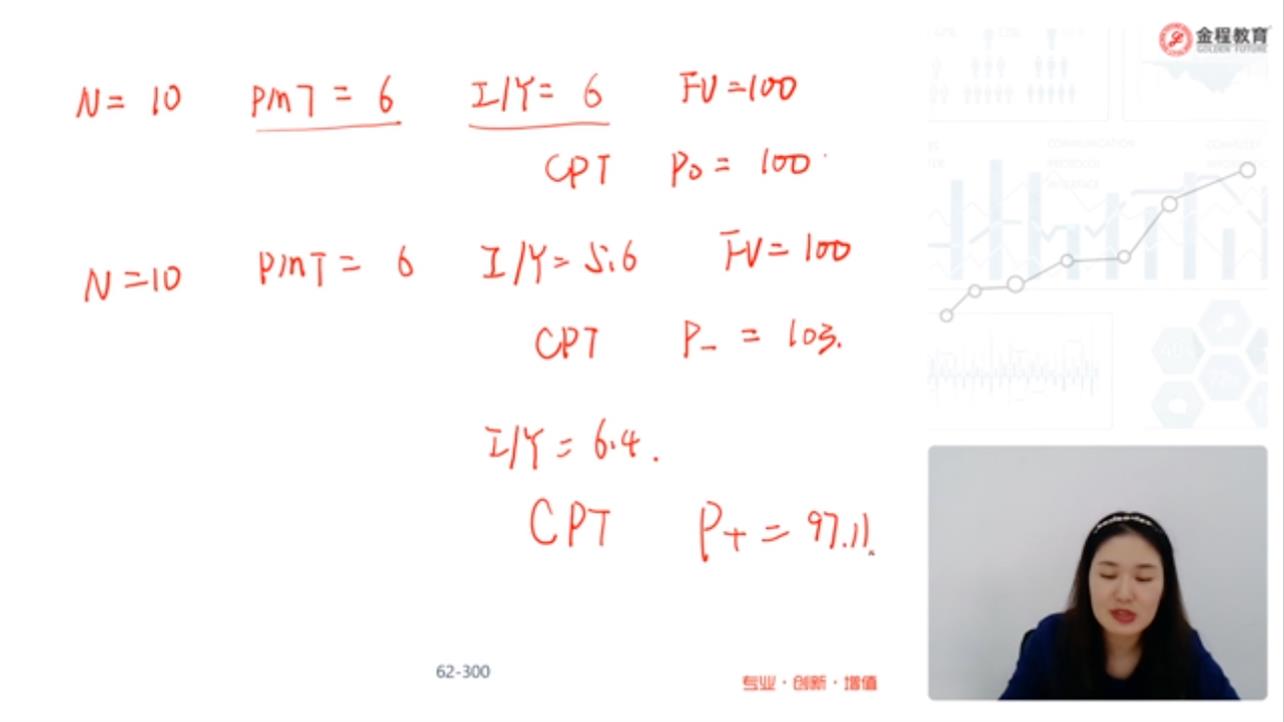 金程教育
GOLDEN FUTURE
N= 10 PMT = 6 I/Y= 6 FV=100
CPT P0 = 100
N=10 PMT = 6 I/Y= 5.6 FV=100
CPT P- = 103.
I/Y = 6.4.
CPT P+ = 97.11.
62-300
专业·创新·增值